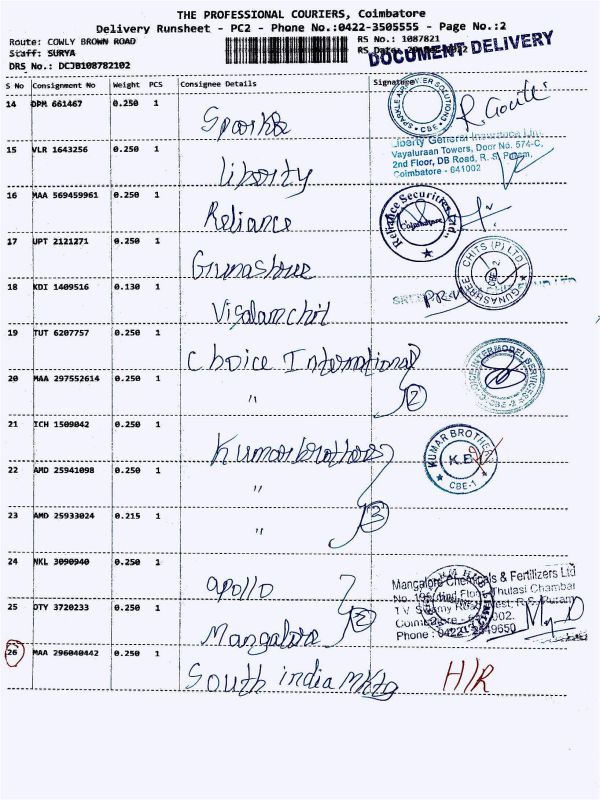 THE PROFESSIONAL COURIERS, Coimbatore
Delivery Runsheet - PC2 - Phone No.:0422-3505555 - Page No.:2
Route: COWLY BROWN ROAD
RS No.: 1087821
Staff: SURYA
RS Date:
DOCUMENT DELIVERY
DRS No.: DCJB108782102
S No Consignment No Weight PCS Consignee Details Signature
14 DPM 661467 0.250 1
Sparkle
SPARKLE AIR SOLUTIONS CBE
15 VLR 1643256 0.250 1
Liberty
Liberty General Insurance Ltd
Vayaluraan Towers, Door No. 574-C,
2nd Floor, DB Road, R. S. Puram,
Coimbatore - 641002
16 MAA 569459961 0.250 1
Reliance
Reliance Securities Ltd., Coimbatore
17 UPT 2121271 0.250 1
Gunashree
GUNASHREE CHITS (P) LTD
18 KDI 1409516 0.130 1
Visalam chit
19 TUT 6207757 0.250 1
Choice International
INTERMODEL SERVICES CBE-2
20 MAA 297552614 0.250 1
" 2
21 ICH 1509042 0.250 1
Kumar brothers
KUMAR BROTHERS K.B CBE-1
22 AMD 25941098 0.250 1
"
23 AMD 25933024 0.215 1
" 3
24 NKL 3090940 0.250 1
apollo
25 OTY 3720233 0.250 1
Mangalore 2
Mangalore Chemicals & Fertilizers Ltd
No. Floor, Thulasi Chambar
T.V. Swamy Road West, R.S. Puram
Coimbatore 002.
Phone : 0422
26 MAA 296040442 0.250 1
South india mktg H/R